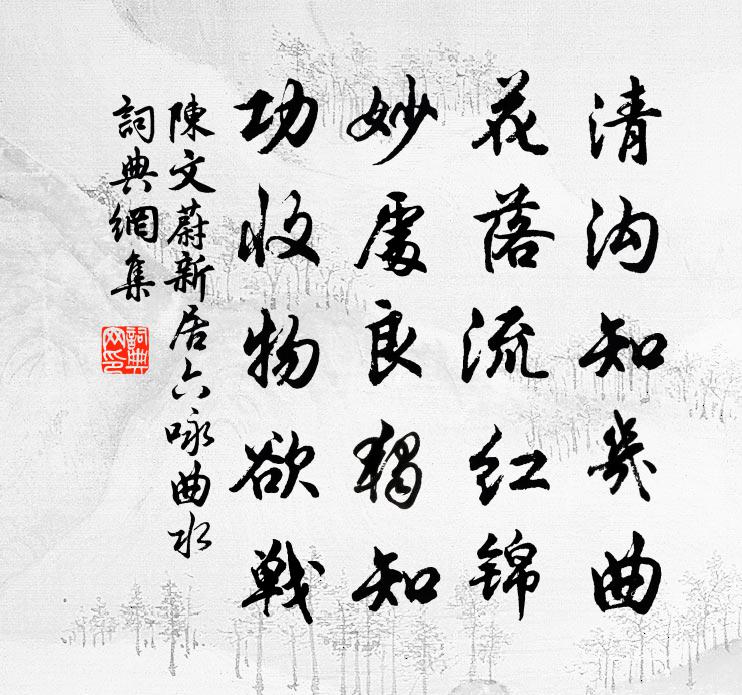 清沟知几曲
花落流红锦
妙處良獨知
功收物欲戰
陳文蔚新居六咏曲水
詞典網集
詞典網印